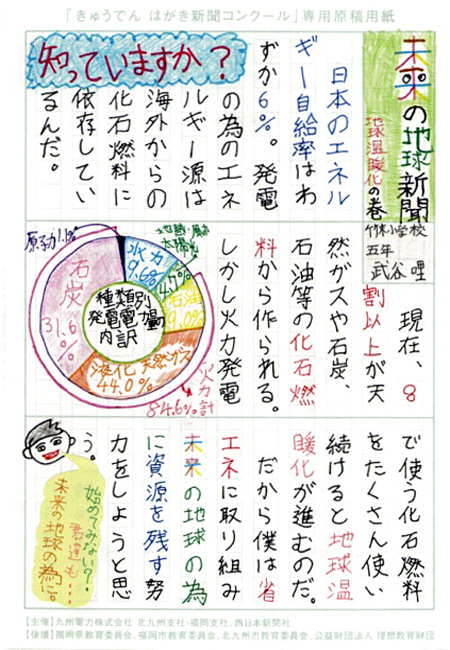 「きゅうでん はがき新聞コンクール」専用原稿用紙
未来の地球新聞
地球温暖化の巻
竹末小学校
五年
武谷 哩
知っていますか？
日本のエネル
ギー自給率はわ
ずか6%。発電
の為のエネ
ルギー源は
海外からの
化石燃料に
依存してい
るんだ。
現在、8
割以上が天
然ガスや石炭、
石油等の化石燃
料から作られる。
しかし火力発電
種類別
発電電力量の
内訳
原子力1.1%
水力
9.6%
地熱・風力
太陽光
4.7%
石油
9.0%
液化天然ガス
44.0%
石炭
31.6
%
火力計
84.6%
で使う化石燃料
をたくさん使い
続けると地球温
暖化が進むのだ。
だから僕は省
エネに取り組み
未来の地球の為
に資源を残す努
力をしようと思
う。
始めてみない？
君達も…
未来の地球の為に。
【主催】九州電力株式会社 北九州支社・福岡支社、西日本新聞社
【後援】福岡県教育委員会、福岡市教育委員会、北九州市教育委員会、公益財団法人 理想教育財団